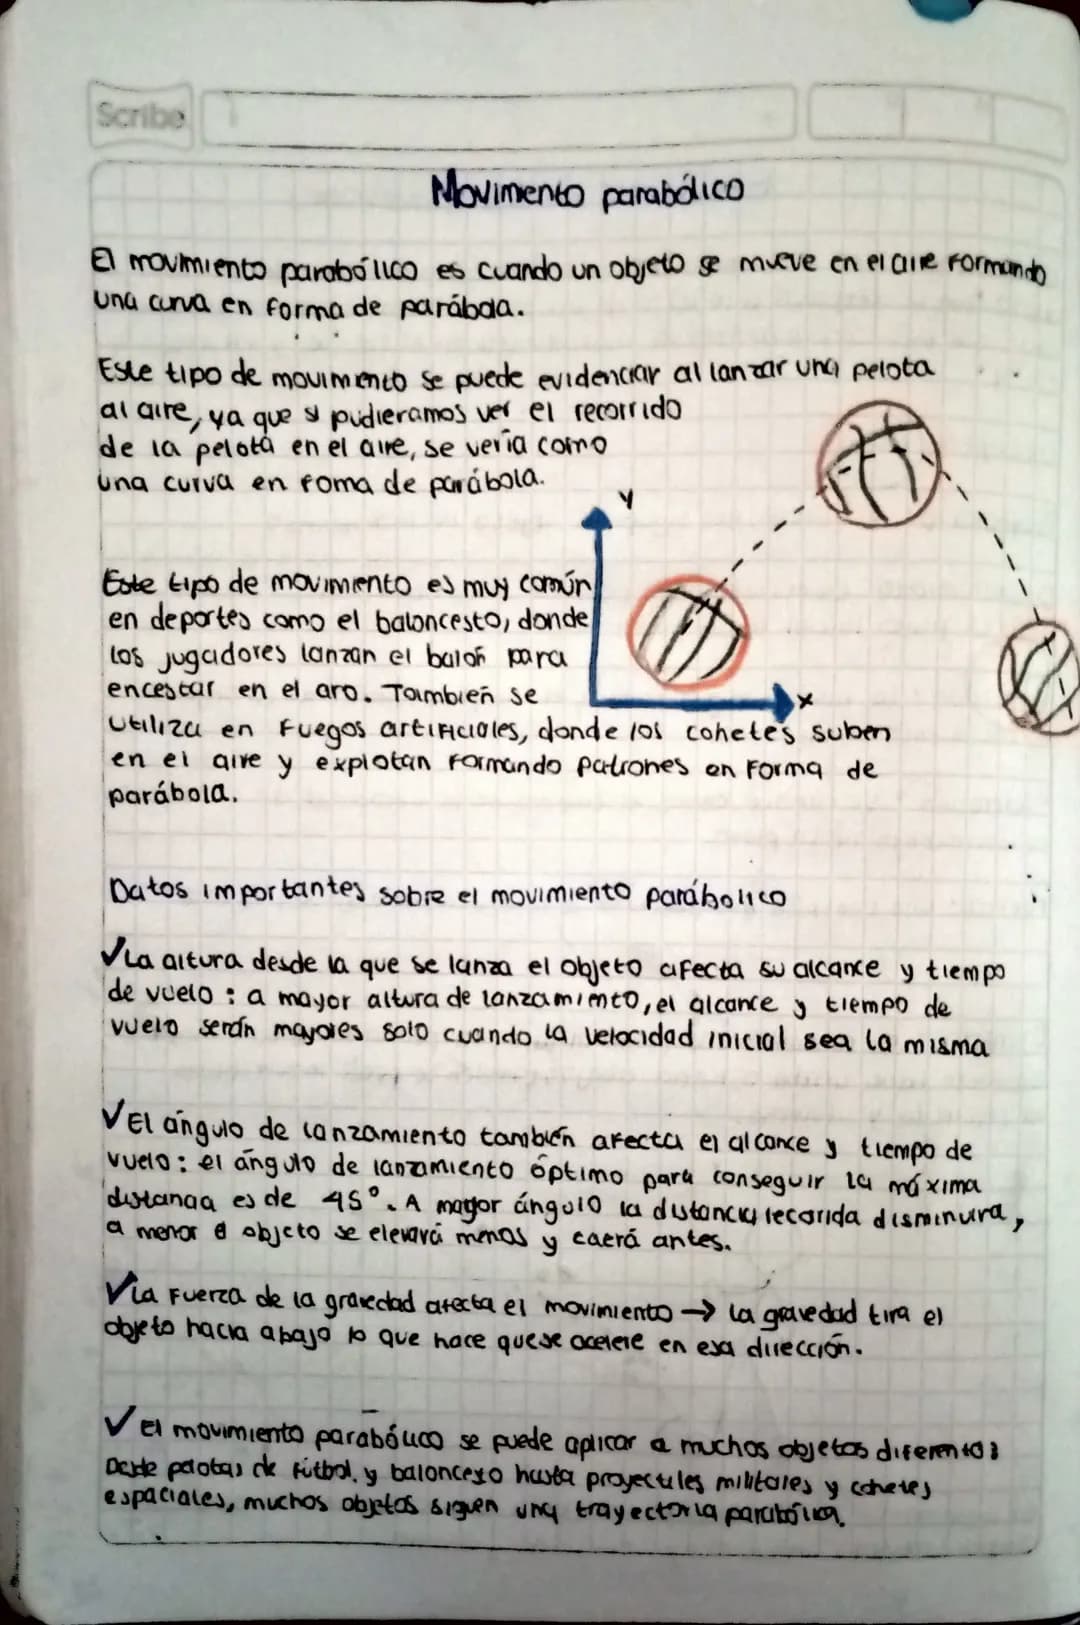 Scribe
Movimento parabólico
El movimiento parabólico es cuando un objeto se mueve en el aire formando
una curva en forma de parábola.
Este tipo de movimiento se puede evidenciar al lanzar una pelota
al aire, ya que si pudieramos ver el recorrido
de la pelota en el aire, se vería como
una curva en foma de parábola.
Y
Este tipo de movimiento es muy común
en deportes como el baloncesto, donde
los jugadores lanzan el balón para
encestar en el aro. También se
X
utiliza en fuegos artificiales, donde los cohetes suben
en el aire y explotan formando patrones en forma de
parábola.
Datos importantes sobre el movimiento parábolico
✓La altura desde la que se lanza el objeto afecta su alcance y tiempo
de vuelo: a mayor altura de lanzamimto, el alcance y tiempo de
vuelo serán mayores solo cuando la velocidad inicial sea la misma
✓El ángulo de lanzamiento también afecta el alcance y tiempo de
vuelo: el ángulo de lanzamiento óptimo para conseguir la máxima
distancia es de 45°. A mayor ángulo la distancia recorrida disminuira,
a menor el objeto se elevará menos y caerá antes.
✓La fuerza de la gravedad afecta el movimiento → la gravedad tira el
objeto hacia abajo lo que hace que se acelere en esa dirección.
✓El movimiento parabólico se puede aplicar a muchos objetos diferentes:
Desde pelotas de fútbol, y baloncesto hasta proyectiles militares y cohetes
espaciales, muchos objetos siguen una trayectoria parabólica.